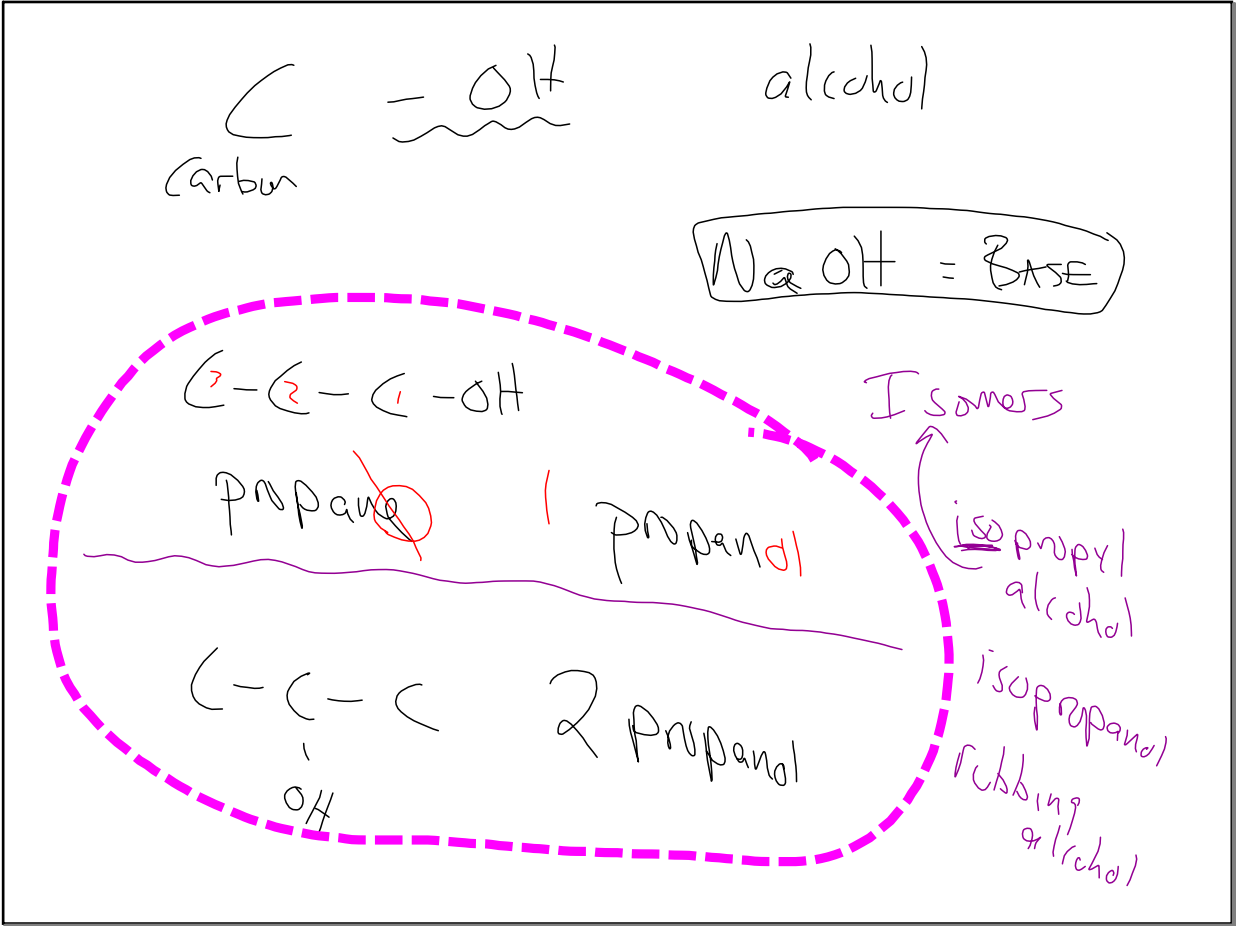 C - OH alcohol
carbon
NaOH = BASE
C3-C2-C1-OH
Isomers
propane 1 propanol
isopropyl
alcohol
C-C-C 2 propanol
OH
isopropanol
rubbing
alcohol